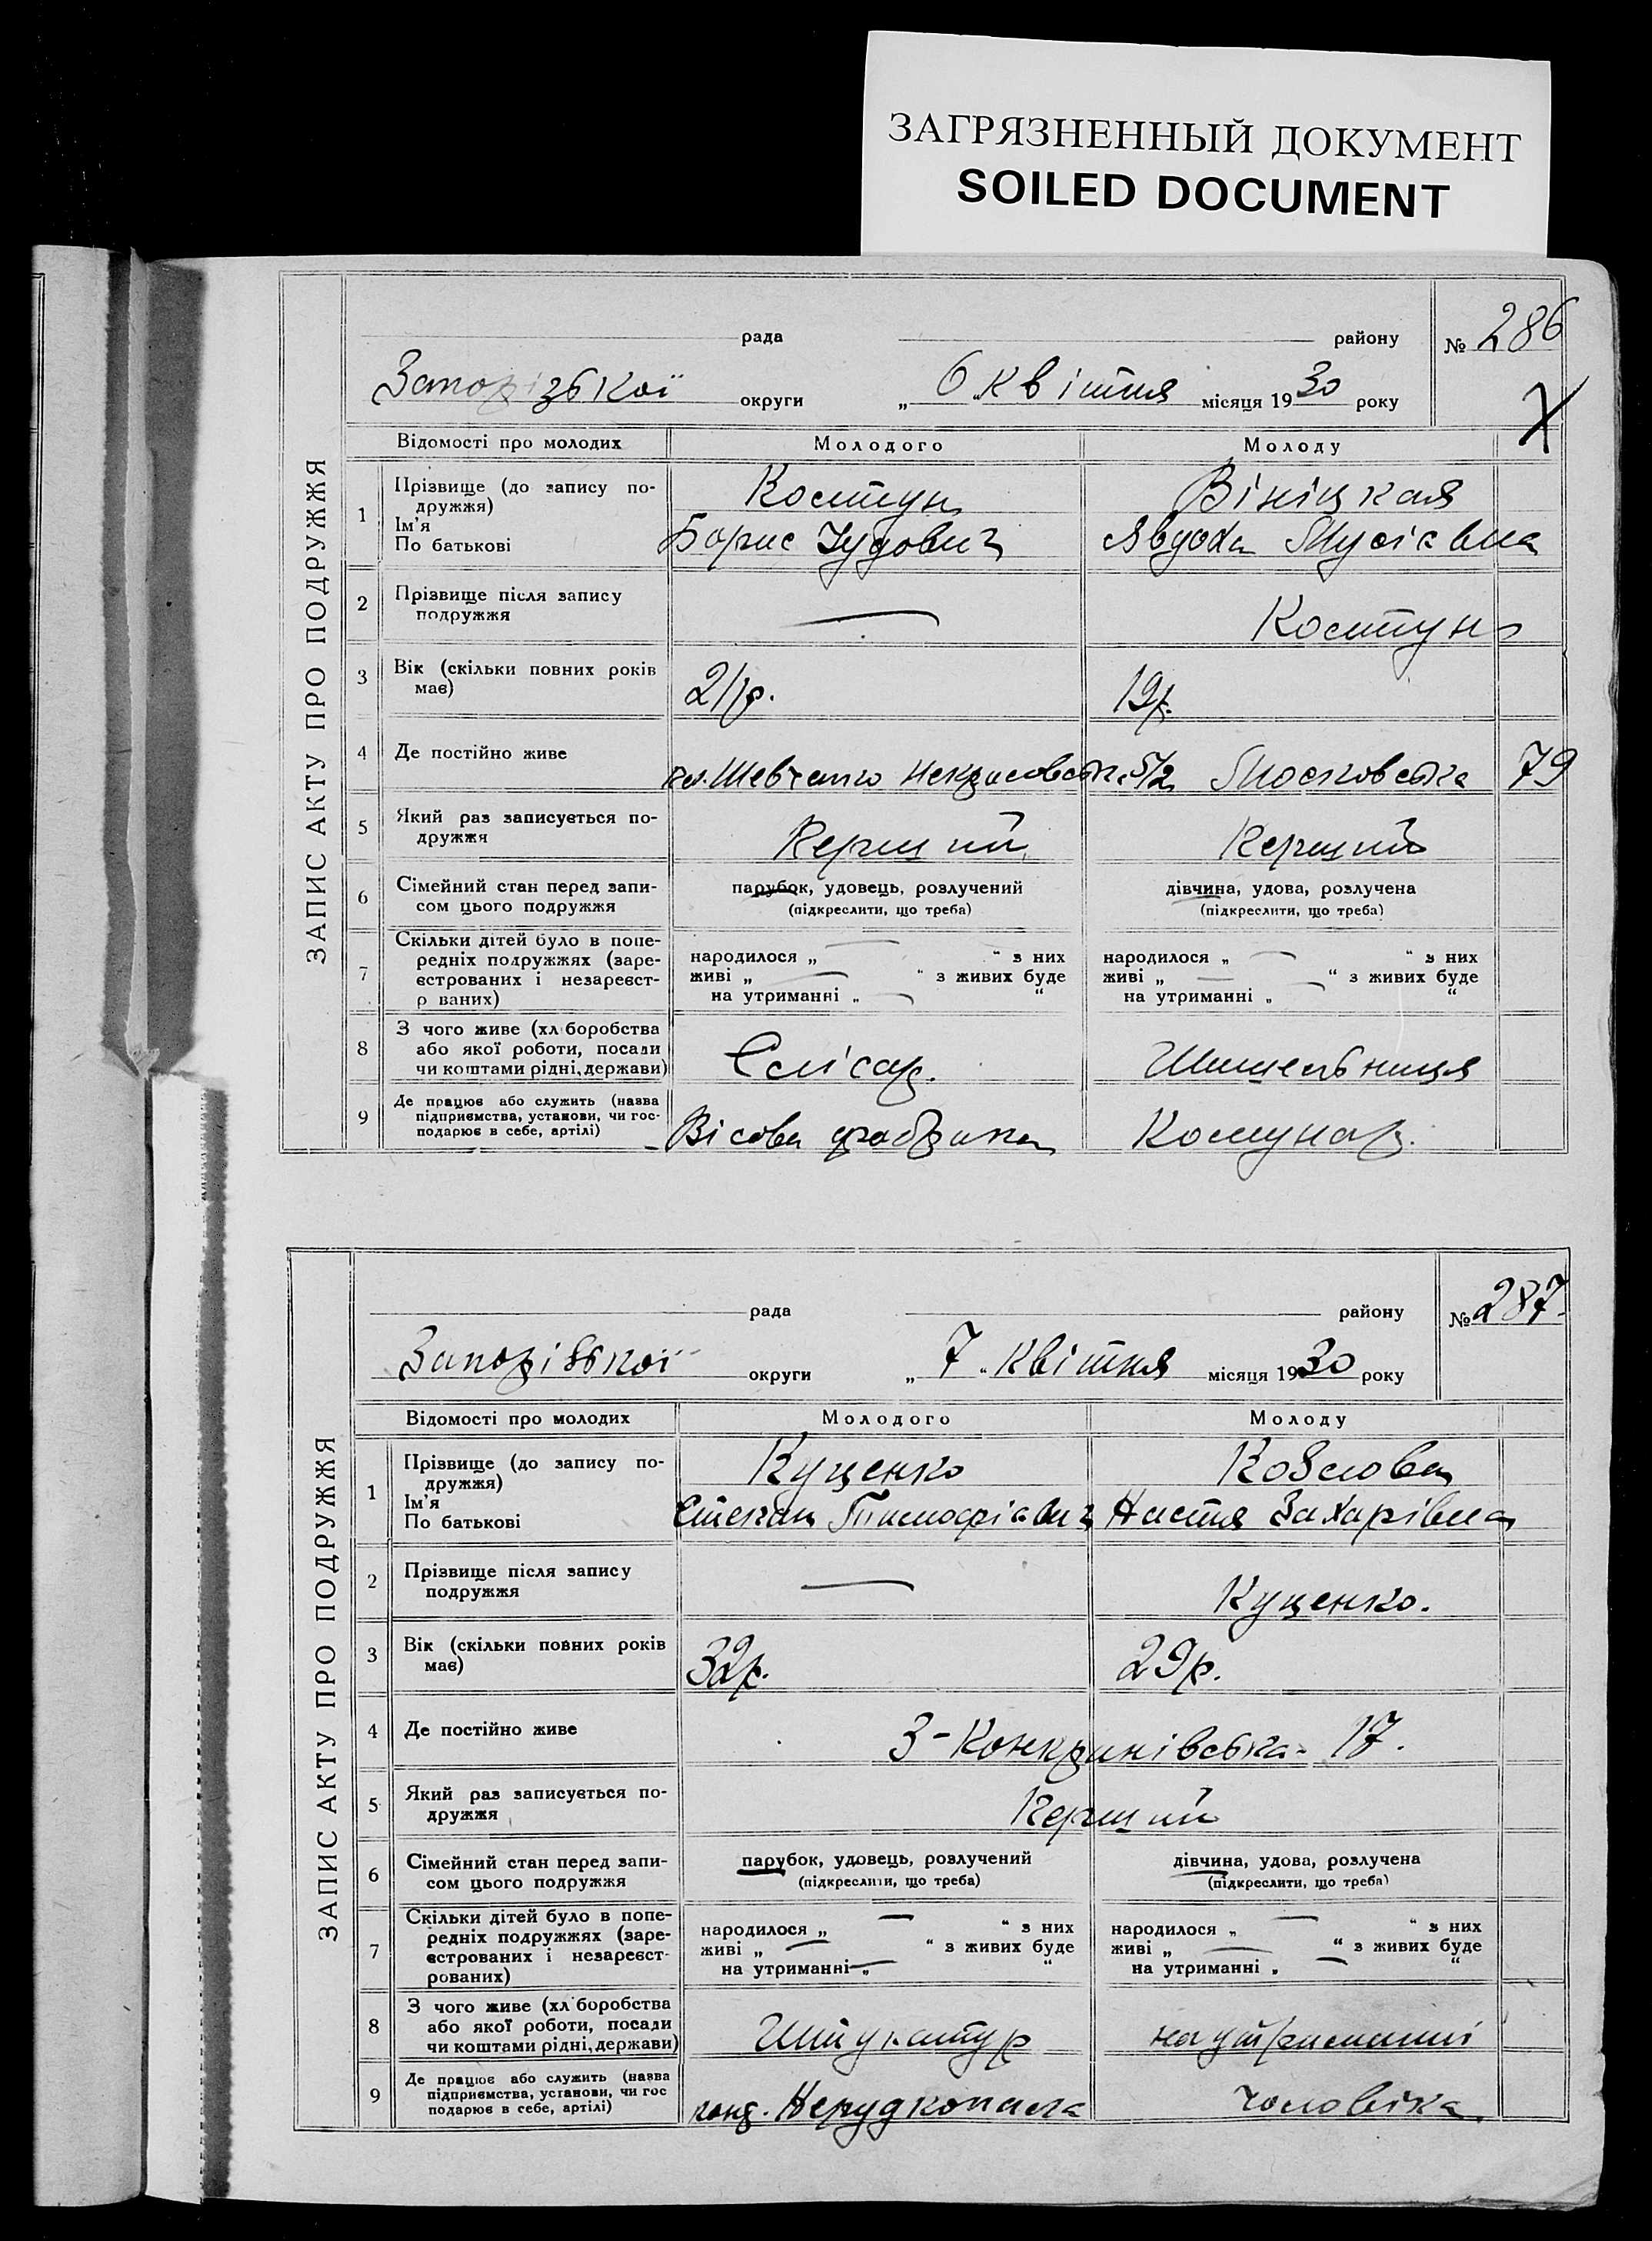 ЗАГРЯЗНЕННЫЙ ДОКУМЕНТ
SOILED DOCUMENT
ЗАПИС АКТУ ПРО ПОДРУЖЖЯ
рада району № 286
Запорізької округи „ 6 " Квітня місяця 1930 року
Відомості про молодих Молодого Молоду
1 Прізвище (до запису по-
дружжя) Костун Вініцкая
Ім'я
По батькові Борис Іудович Явдоха Мусієвна
2 Прізвище після запису
подружжя — Костун
3 Вік (скільки повних років
має) 21 р. 19 р.
4 Де постійно живе Шевченко Некрасовська 5/2 Московська 79
5 Який раз записується по-
дружжя Перший Перший
6 Сімейний стан перед запи- парубок, удовець, розлучений дівчина, удова, розлучена
сом цього подружжя (підкреслити, що треба) (підкреслити, що треба)
7 Скільки дітей було в попе-
редніх подружжях (заре- народилося „ — " з них народилося „ — " з них
єстрованих і незареєст- живі „ — " з живих буде живі „ — " з живих буде
р ваних) на утриманні „ — " на утриманні „ — "
8 З чого живе (хл боробства
або якої роботи, посади
чи коштами рідні, держави) Слісар. Шишельниця
9 Де працює або служить (назва
підприємства, установи, чи гос-
подарює в себе, артілі) Вісова фабрика Комунар.
ЗАПИС АКТУ ПРО ПОДРУЖЖЯ
рада району № 287.
Запорізької округи „ 7 " Квітня місяця 1930 року
Відомості про молодих Молодого Молоду
1 Прізвище (до запису по-
дружжя) Куценко Козлова
Ім'я
По батькові Степан Тимофієвич Настя Захарівна
2 Прізвище після запису
подружжя — Куценко.
3 Вік (скільки повних років
має) 32 р. 29 р.
4 Де постійно живе 3- 17.
5 Який раз записується по-
дружжя Перший
6 Сімейний стан перед запи- парубок, удовець, розлучений дівчина, удова, розлучена
сом цього подружжя (підкреслити, що треба) (підкреслити, що треба)
7 Скільки дітей було в попе-
редніх подружжях (заре- народилося „ — " з них народилося „ — " з них
єстрованих і незареєст- живі „ — " з живих буде живі „ — " з живих буде
рованих) на утриманні „ — " на утриманні „ — "
8 З чого живе (хл боробства
або якої роботи, посади
чи коштами рідні, держави) Штукатур на утриманні
9 Де працює або служить (назва
підприємства, установи, чи гос
подарює в себе, артілі) Нерудкопала чоловіка.